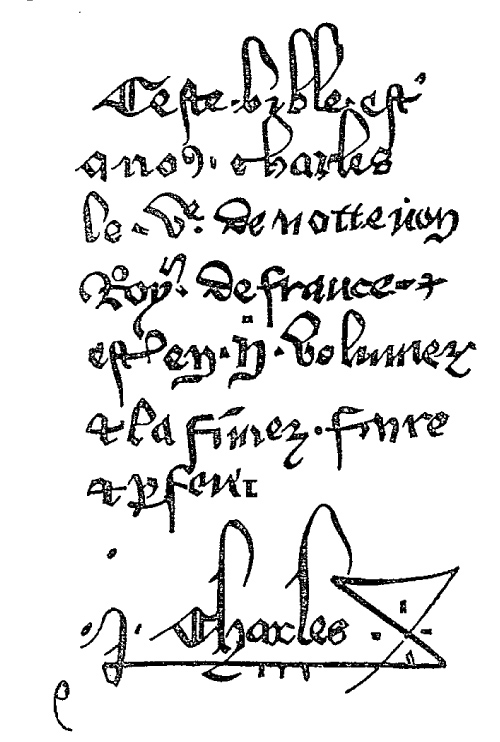 Ceste bible est
a no9. charles
le . Ve. de notre non
Roy. de france . et
est en . ij . volumez
et la fimez . faire
et
. J . Charles